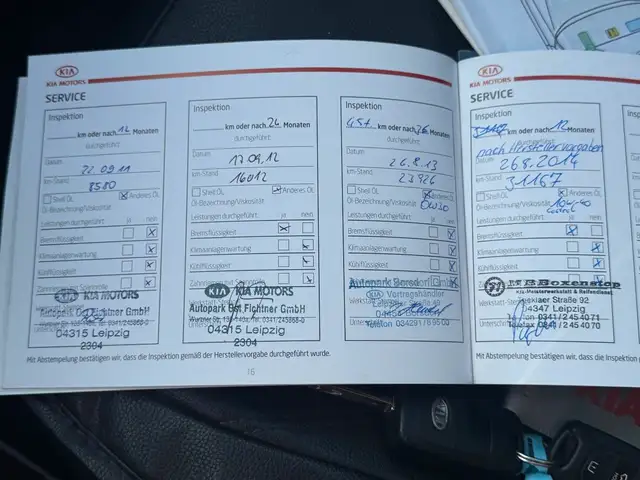 KIA
KIA MOTORS
SERVICE
Inspektion
km oder nach 12 Monaten
durchgeführt:
Datum
22.09.11
km-Stand
8580
Shell Öl
Anderes Öl
Öl-Bezeichnung/Viskosität
Leistungen durchgeführt: ja nein
Bremsflüssigkeit
Klimaanlagenwartung
Kühlflüssigkeit
KIA MOTORS
Autopark Ost Fichtner GmbH
04315 Leipzig
2304
Inspektion
km oder nach 24 Monaten
durchgeführt:
Datum
17.09.12
km-Stand
16012
Shell Öl
Anderes Öl
Öl-Bezeichnung/Viskosität
Leistungen durchgeführt: ja nein
Bremsflüssigkeit
Klimaanlagenwartung
Kühlflüssigkeit
KIA MOTORS
Autopark Ost Fichtner GmbH
04315 Leipzig
2304
Inspektion
45T km oder nach 36 Monaten
durchgeführt:
Datum
26.8.13
km-Stand
23926
Shell Öl
Anderes Öl
Öl-Bezeichnung/Viskosität
0W30
Leistungen durchgeführt: ja nein
Bremsflüssigkeit
Klimaanlagenwartung
Kühlflüssigkeit
Autopark Borsdorf GmbH
KIA Vertragshändler
Telefon 034291/8 95 00
Mit Abstempelung bestätigen wir, dass die Inspektion gemäß der Herstellervorgabe durchgeführt wurde.
16
KIA
KIA MOTORS
SERVICE
Inspektion
km oder nach 12 Monaten
nach Herstellervorgaben
durchgeführt:
Datum
26.8.2014
km-Stand
31167
Shell Öl
Anderes Öl
Öl-Bezeichnung/Viskosität
10W-40
Leistungen durchgeführt: ja nein
Bremsflüssigkeit
Klimaanlagenwartung
Kühlflüssigkeit
Boxenstop
Kfz-Meisterwerkstatt & Reifendienst
Straße 92
04347 Leipzig
Telefon 0341/2 45 40 71
Telefax 0341/2 45 40 70
Mit Abstempelung bestätigen wir, dass die Inspektion
KIA